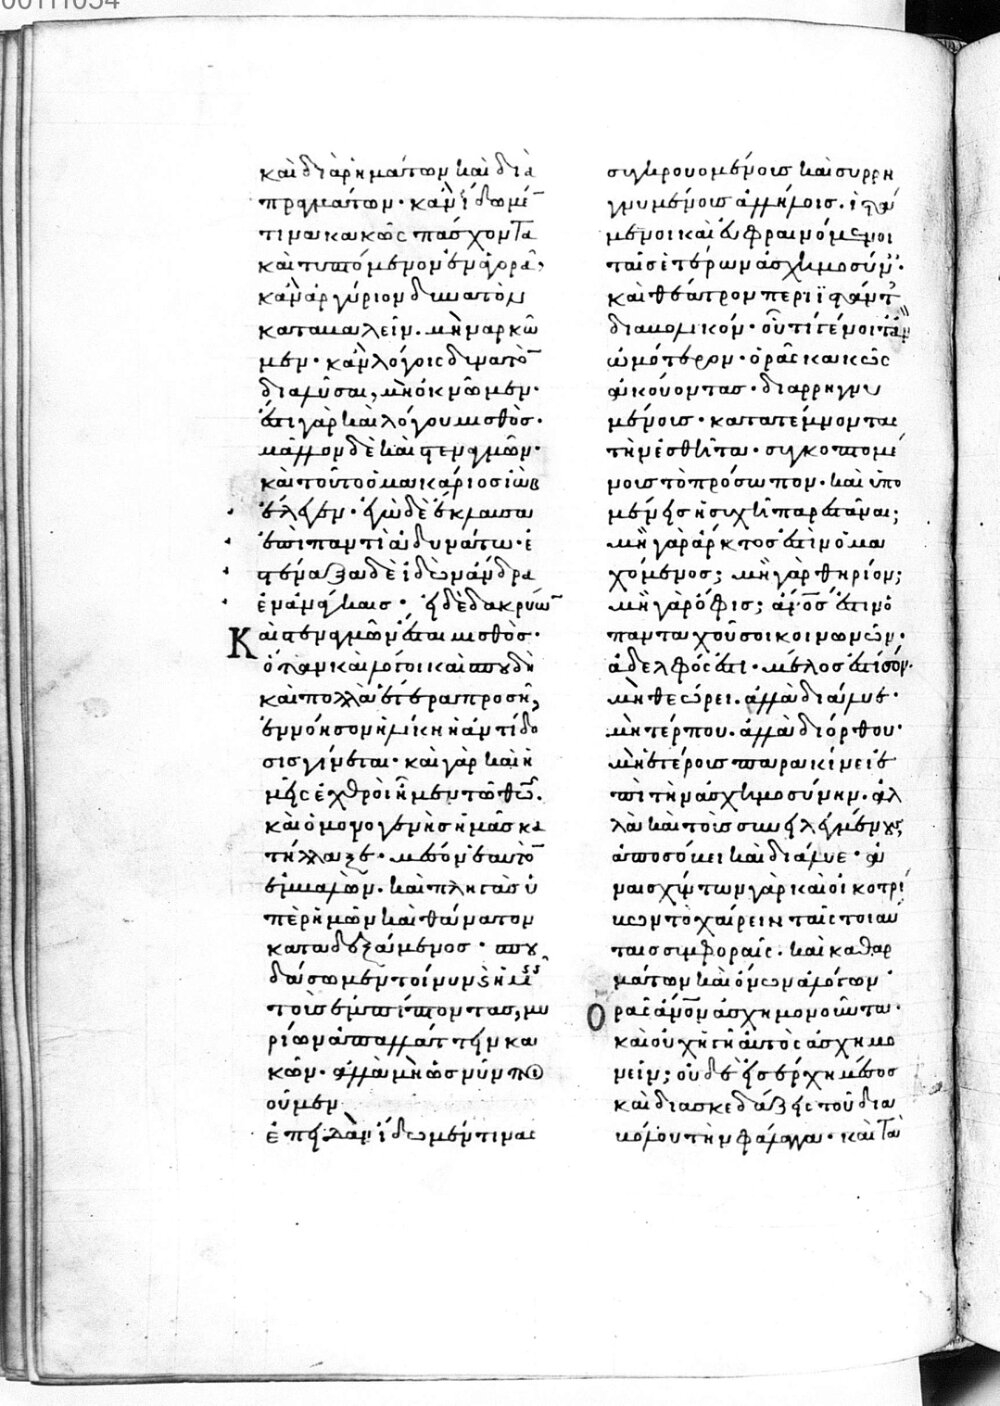 καὶ διὰ ῥημάτων καὶ διὰ
πραγμάτων· κἂν ἴδωμέ̅
τινα κακῶς πάσχοντα
καὶ τυπτόμενον ἐν ἀγορᾶ,
κἂν ἀργύριον δυνατὸν
καταβαλεῖν. μὴ ναρκῶ
μεν· κἂν λόγοις δυνατὸ̅
διαλῦσαι, μὴ ὀκνῶμεν·
ἔστι γὰρ καὶ λόγου μισθὸς·
μᾶλλον δὲ καὶ στεναγμῶν·
καὶ τοῦτο ὁ μακάριος ἰὼβ
ἔλεγεν· ἐγὼ δὲ ἔκλαυσα
ἐπὶ παντὶ ἀδυνάτω· ἐ
στέναξα δὲ ἰδὼν ἄνδρα
ἐν ἀνάγκαις· εἰ δὲ δακρύω̅
Καὶ στεναγμῶν ἔσται μισθὸς·
ὅταν καὶ λόγοι καὶ σπουδὴ
καὶ πολλὰ ἕτερα προσῆ,
ἐννόησον ἡλίκη ἡ ἀντίδο
σις γίνεται· καὶ γὰρ καὶ ἡ
μεῖς ἐχθροὶ ἦμεν τῶ θω̅.
καὶ ὁ μονογενὴς ἡμᾶς κα
τήλλαξε· μέσον ἑαυτὸ̅
ἐμβαλὼν. καὶ πληγὰς ὑ
πὲρ ἡμῶν καὶ θάνατον
καταδεξάμενος· σπου
δάσωμεν τοίνυν καὶ ἡμεῖς
τοὺς ἐμπίπτοντας, μυ
ρίων ἀπαλλάττειν κα
κῶν. ἀλλὰ μὴ ὡς νῦν ποι
οῦμεν
ἐπειδὰν ἴδωμέν τινας
συγκρουομένους καὶ συρρη
γνυμένους ἀλλήλοις. ἱστά
μενοι καὶ εὐφραινόμενοι
ταῖς ἑτέρων ἀσχημοσύν·
καὶ θέατρον περιϊστάντ
διαβολικόν· οὗ τί γένοιτ' ἂν
ὠμότερον· ὁρᾶς κακῶς
ἀκούοντας· διαρρηγνυ
μένους· κατατέμνοντας
τὴν ἐσθῆτα· συγκοπτομέ
νους τὸ πρόσωπον. καὶ ὑπο
μένεις ἡσυχῆ παρεστάναι;
μὴ γὰρ ἄρκτος ἐστὶν ὁ μα
χόμενος; μὴ γὰρ θηρίον;
μὴ γὰρ ὄφις; ἄνος ἐστὶν ὁ
πανταχοῦ σοι κοινωνῶν·
ἀδελφός ἐστι· μέλος ἐστὶ σόν·
μὴ θεώρει. ἀλλὰ διάλυε·
μὴ τέρπου. ἀλλὰ διόρθου·
μὴ ἑτέρους παρακίνει ἐ
πὶ τὴν ἀσχημοσύνην. ἀλ
λὰ καὶ τοὺς συνειλεγμένους
ἀποσόβει καὶ διάλυε· ἀ
ναισχύντων γὰρ καὶ οἰκοτρί
βων τὸ χαίρειν ταῖς τοιαύ
ταις συμφοραῖς. καὶ καθαρ
μάτων καὶ ὄνων ἀλόγων·
Ορᾶς ἄνον ἀσχημονοῦντα·
καὶ οὐχ ἡγῆ αὐτὸς ἀσχημο
νεῖν; οὐδὲ εἰσέρχη μέσος
καὶ διασκεδάζεις τοῦ δια
βόλου τὴν φάλαγγα· καὶ τὰ